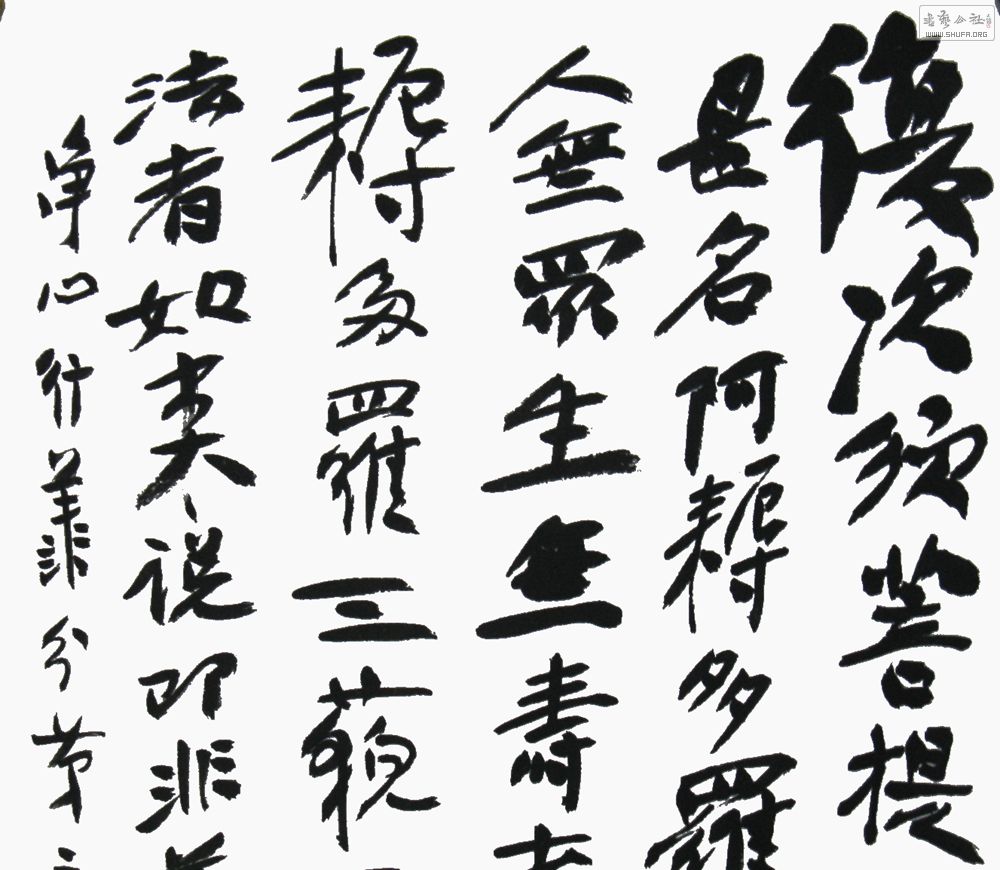 復次須菩提
是名阿耨多羅
人無眾生無壽
耨多羅三藐
法者如來說即非
净心行善分第
书艺公社
WWW.SHUFA.ORG